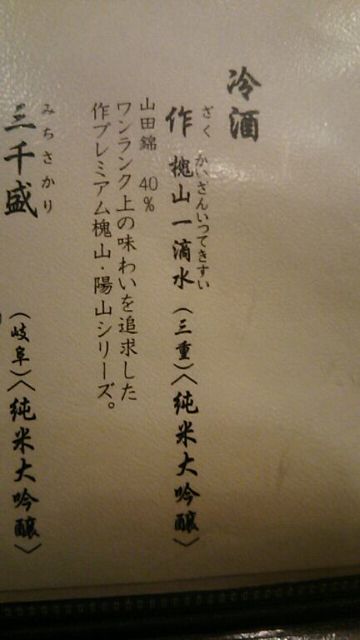 冷酒
ざく かいざんいってきすい
作 槐山一滴水(三重)〈純米大吟醸〉
山田錦 40%
ワンランク上の味わいを追求した
作プレミアム槐山・陽山シリーズ。
みちさかり
三千盛(岐阜)〈純米大吟醸〉